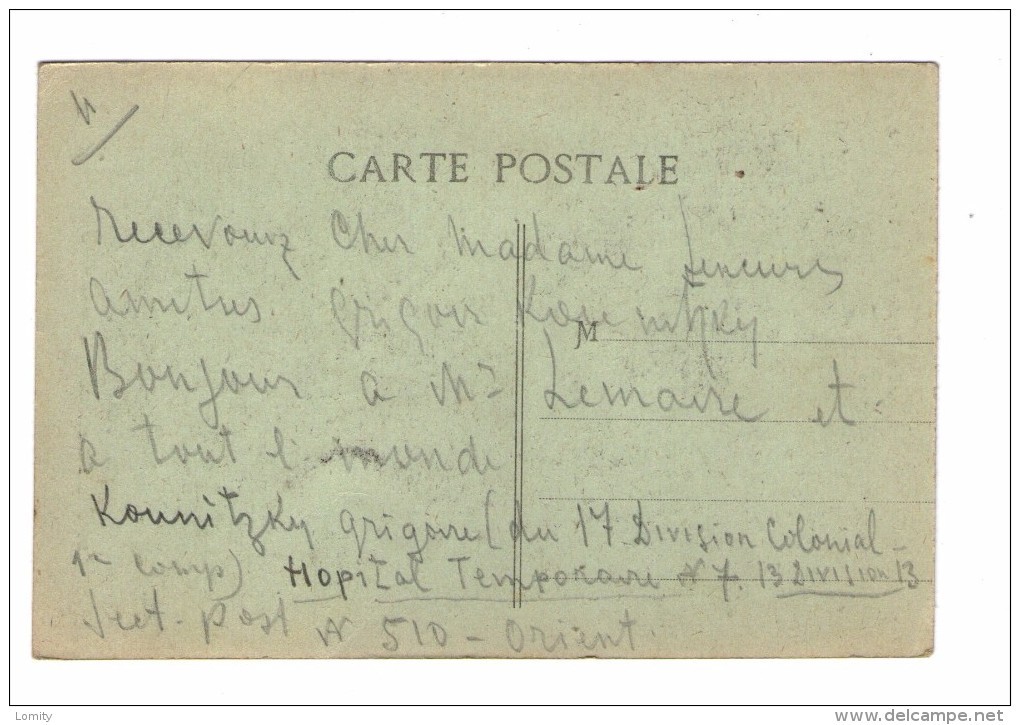 CARTE POSTALE
recevouz Cher madame sincures
amitus grigoir Kounitzky
M
Bonjour a Mr Lemaire et
a tout l monde
Kounitzky grigoire (du 17 Division Colonial -
1re Comp) Hopital Temporaire N 7. 13 Division 13
Sect. post N 510 - Orient.
Lomity
delcampe.net